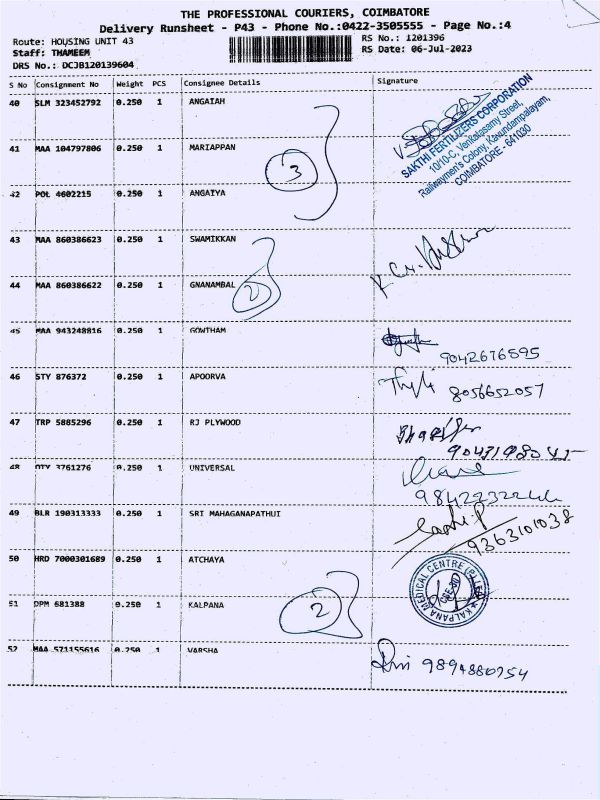 THE PROFESSIONAL COURIERS, COIMBATORE
Delivery Runsheet - P43 - Phone No.:0422-3505555 - Page No.:4
Route: HOUSING UNIT 43
RS No.: 1201396
Staff: THAMEEM
RS Date: 06-Jul-2023
DRS No.: DCJB120139604
S No Consignment No Weight PCS Consignee Details Signature
40 SLM 323452792 0.250 1 ANGAIAH
SAKTHI FERTILIZERS CORPORATION
10/10-C, Venkatasamy Street,
Railwaymen's Colony, Kavundampalayam,
COIMBATORE - 641030
41 MAA 104797806 0.250 1 MARIAPPAN
3
42 POL 4602215 0.250 1 ANGAIYA
43 MAA 860386623 0.250 1 SWAMIKKAN
44 MAA 860386622 0.250 1 GNANAMBAL
2
45 MAA 943248816 0.250 1 GOWTHAM
9042676595
46 STY 876372 0.250 1 APOORVA
8056652057
47 TRP 5885296 0.250 1 RJ PLYWOOD
48 OTY 3761276 0.250 1 UNIVERSAL
49 BLR 190313333 0.250 1 SRI MAHAGANAPATHUI
9363101038
50 HRD 7000301689 0.250 1 ATCHAYA
KALPANA MEDICAL CENTRE (P) LTD
CBE-30
51 DPM 681388 0.250 1 KALPANA
2
52 MAA 571155616 0.250 1 VARSHA
9894880754